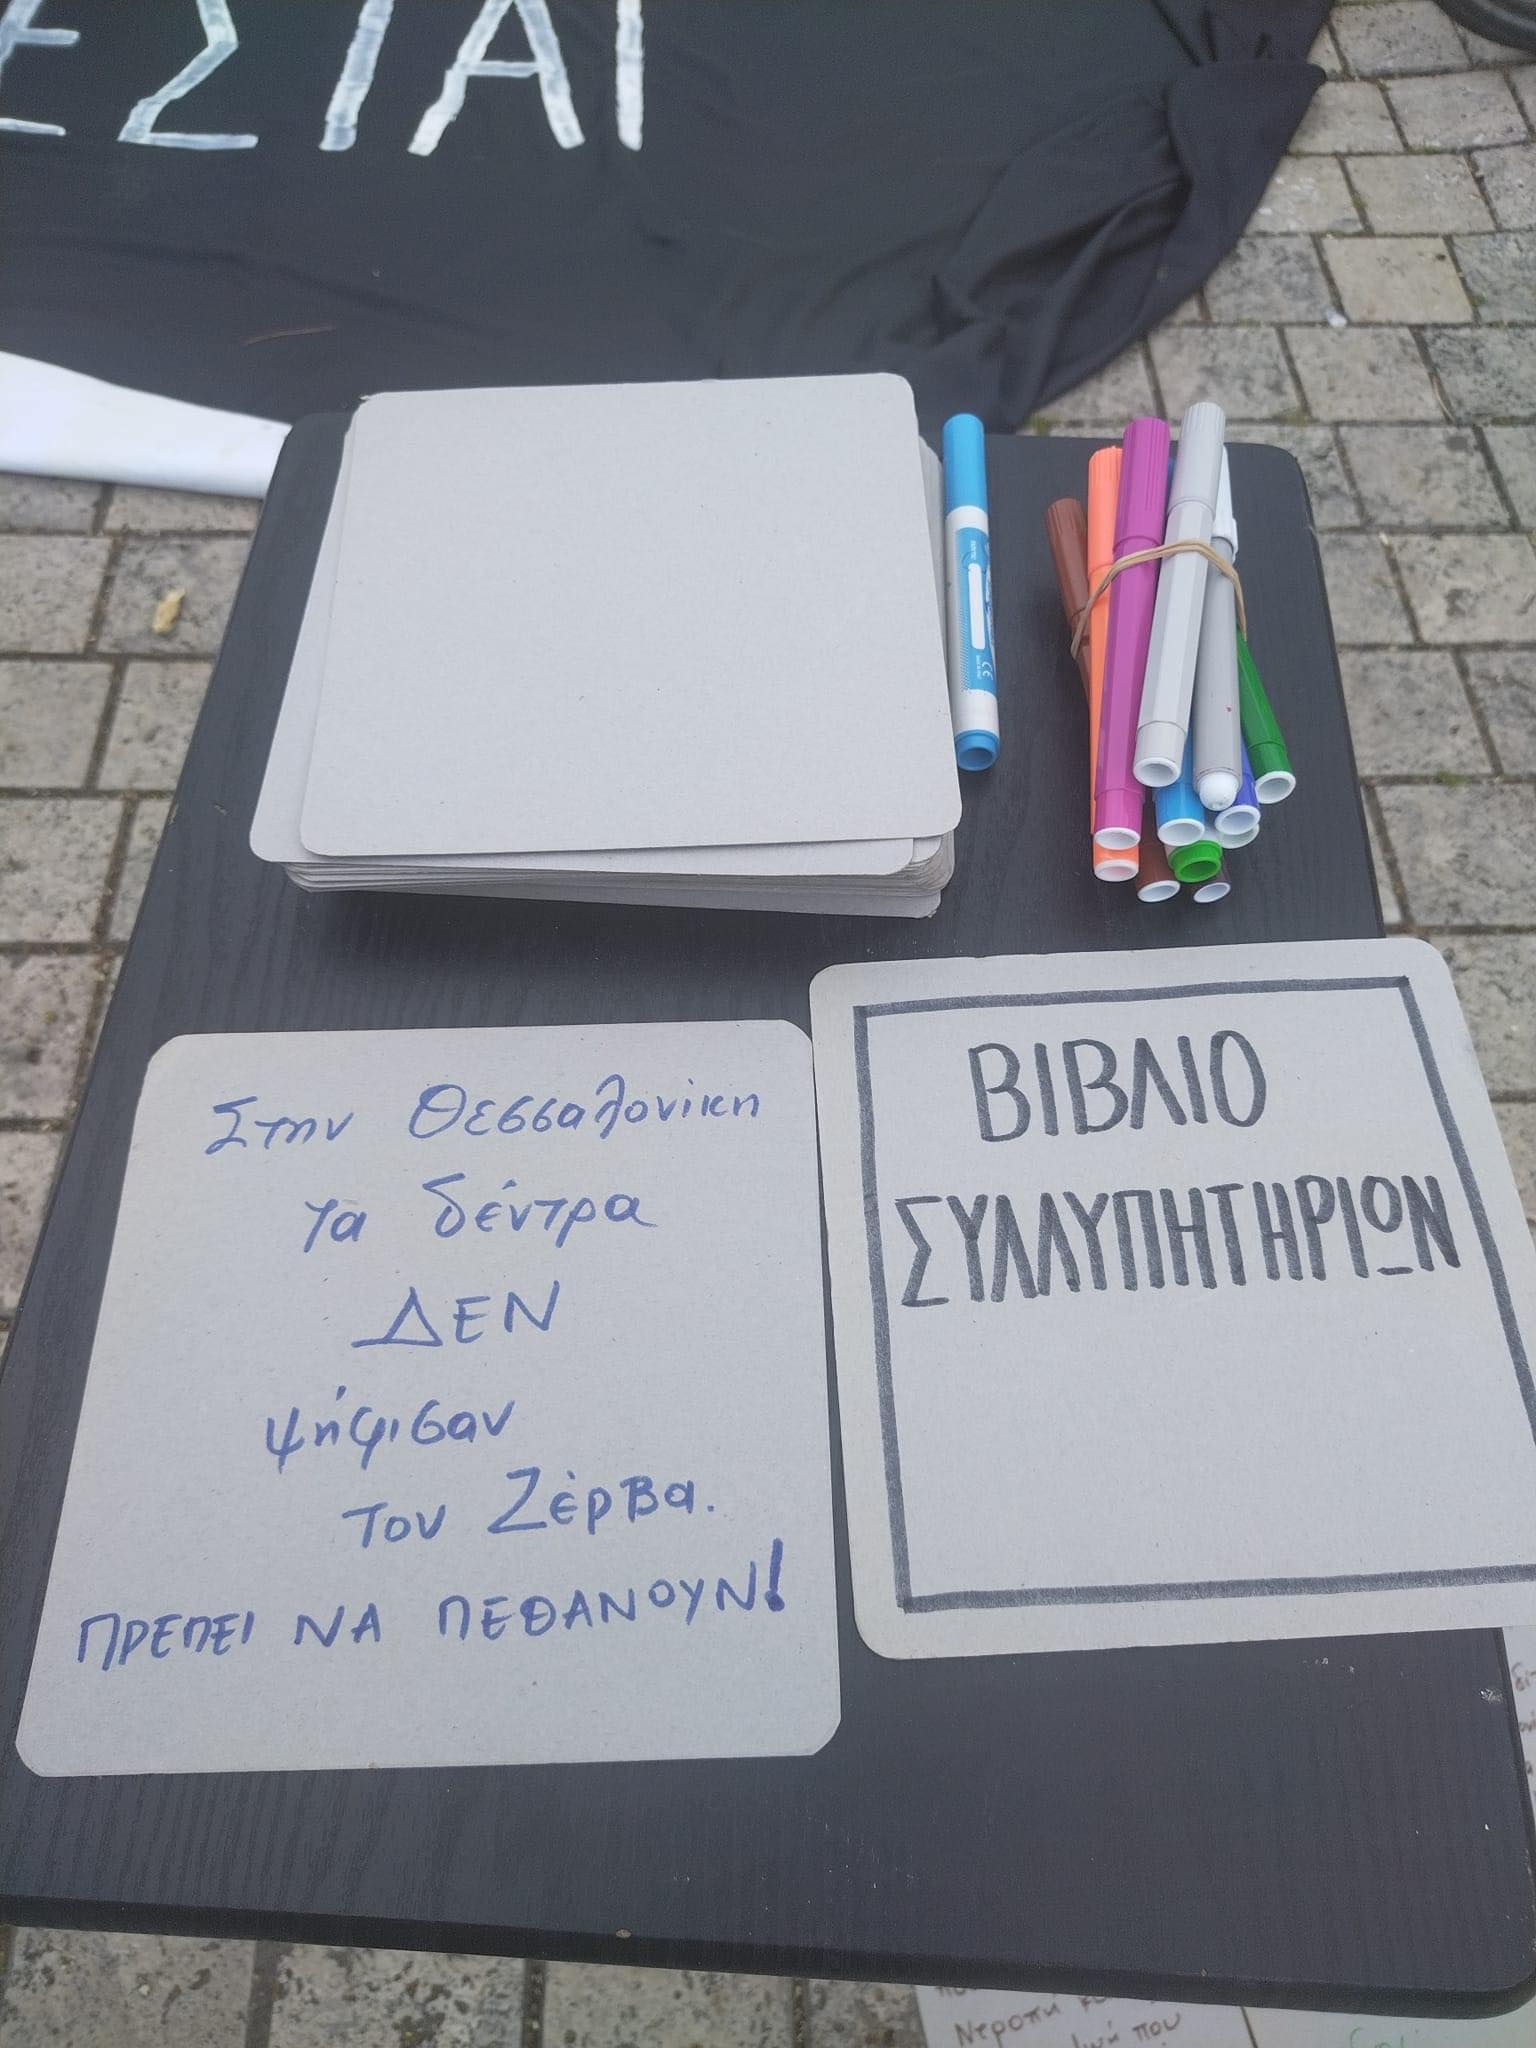 ΕΣΤΑΙ
Στην Θεσσαλονίκη
τα δέντρα
ΔΕΝ
ψήφισαν
τον Ζέρβα.
ΠΡΕΠΕΙ ΝΑ ΠΕΘΑΝΟΥΝ!
ΒΙΒΛΙΟ
ΣΥΛΛΥΠΗΤΗΡΙΩΝ
Ντροπή
που